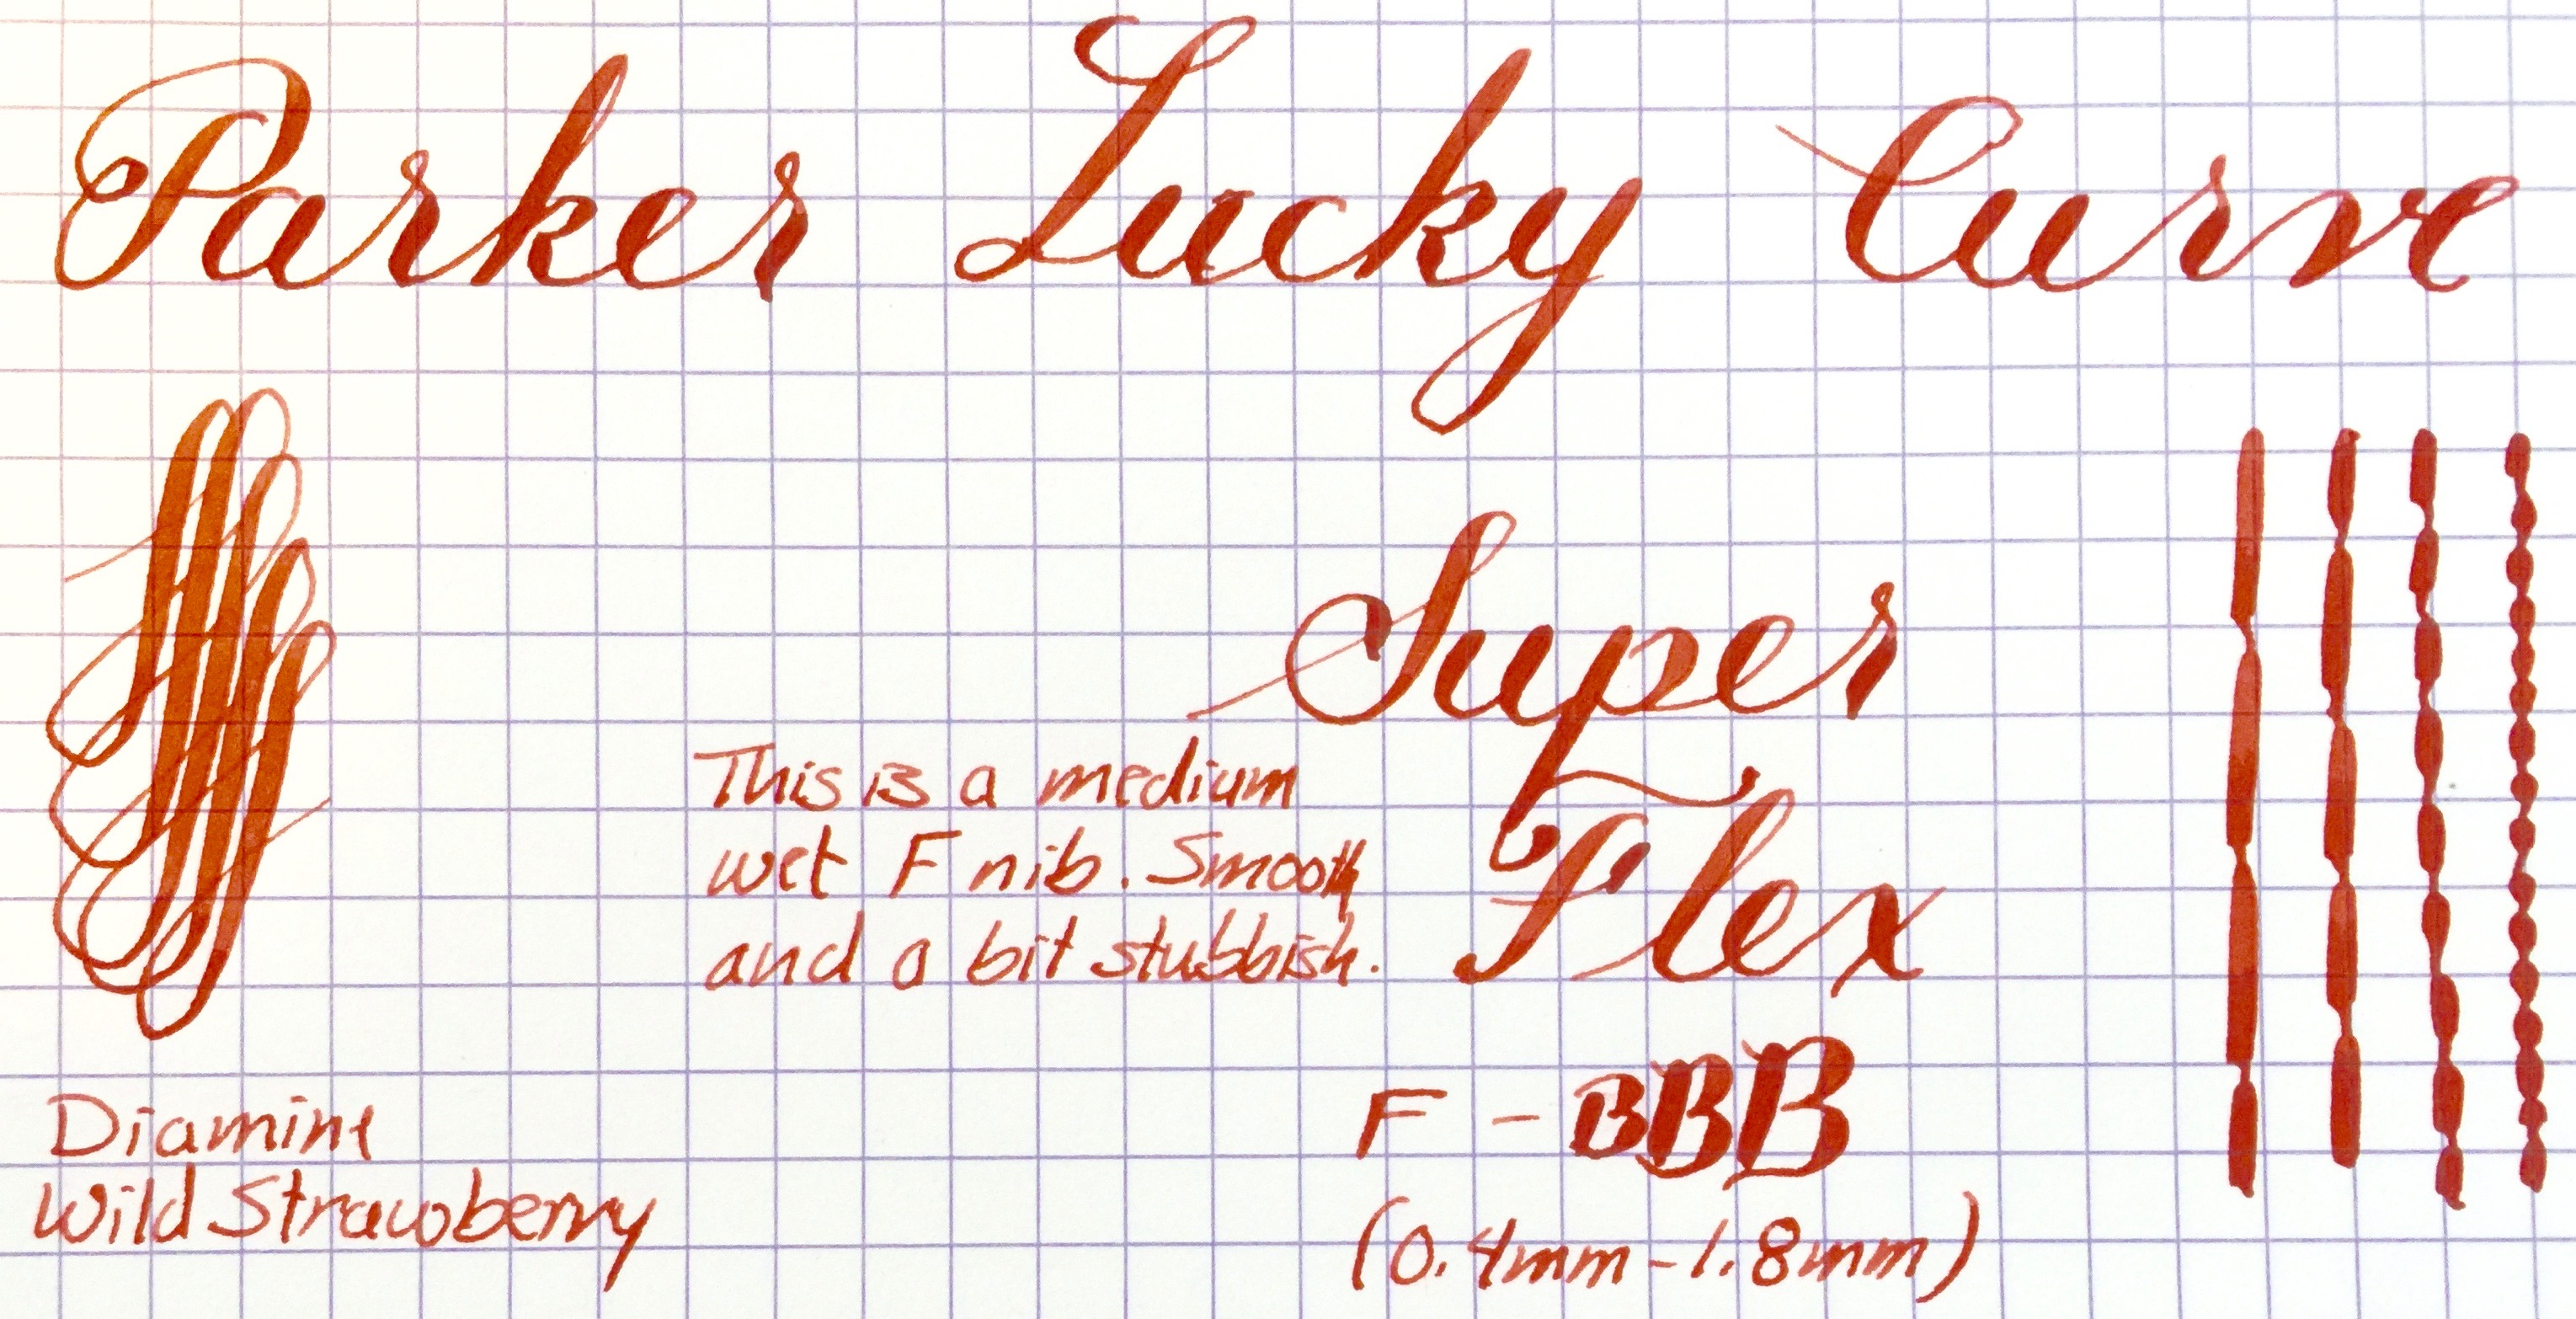 Parker Lucky Curve
Super
Flex
This is a medium
wet F nib. Smooth
and a bit stubbish.
F - BBB
(0.4mm-1.8mm)
Diamine
Wild Strawberry